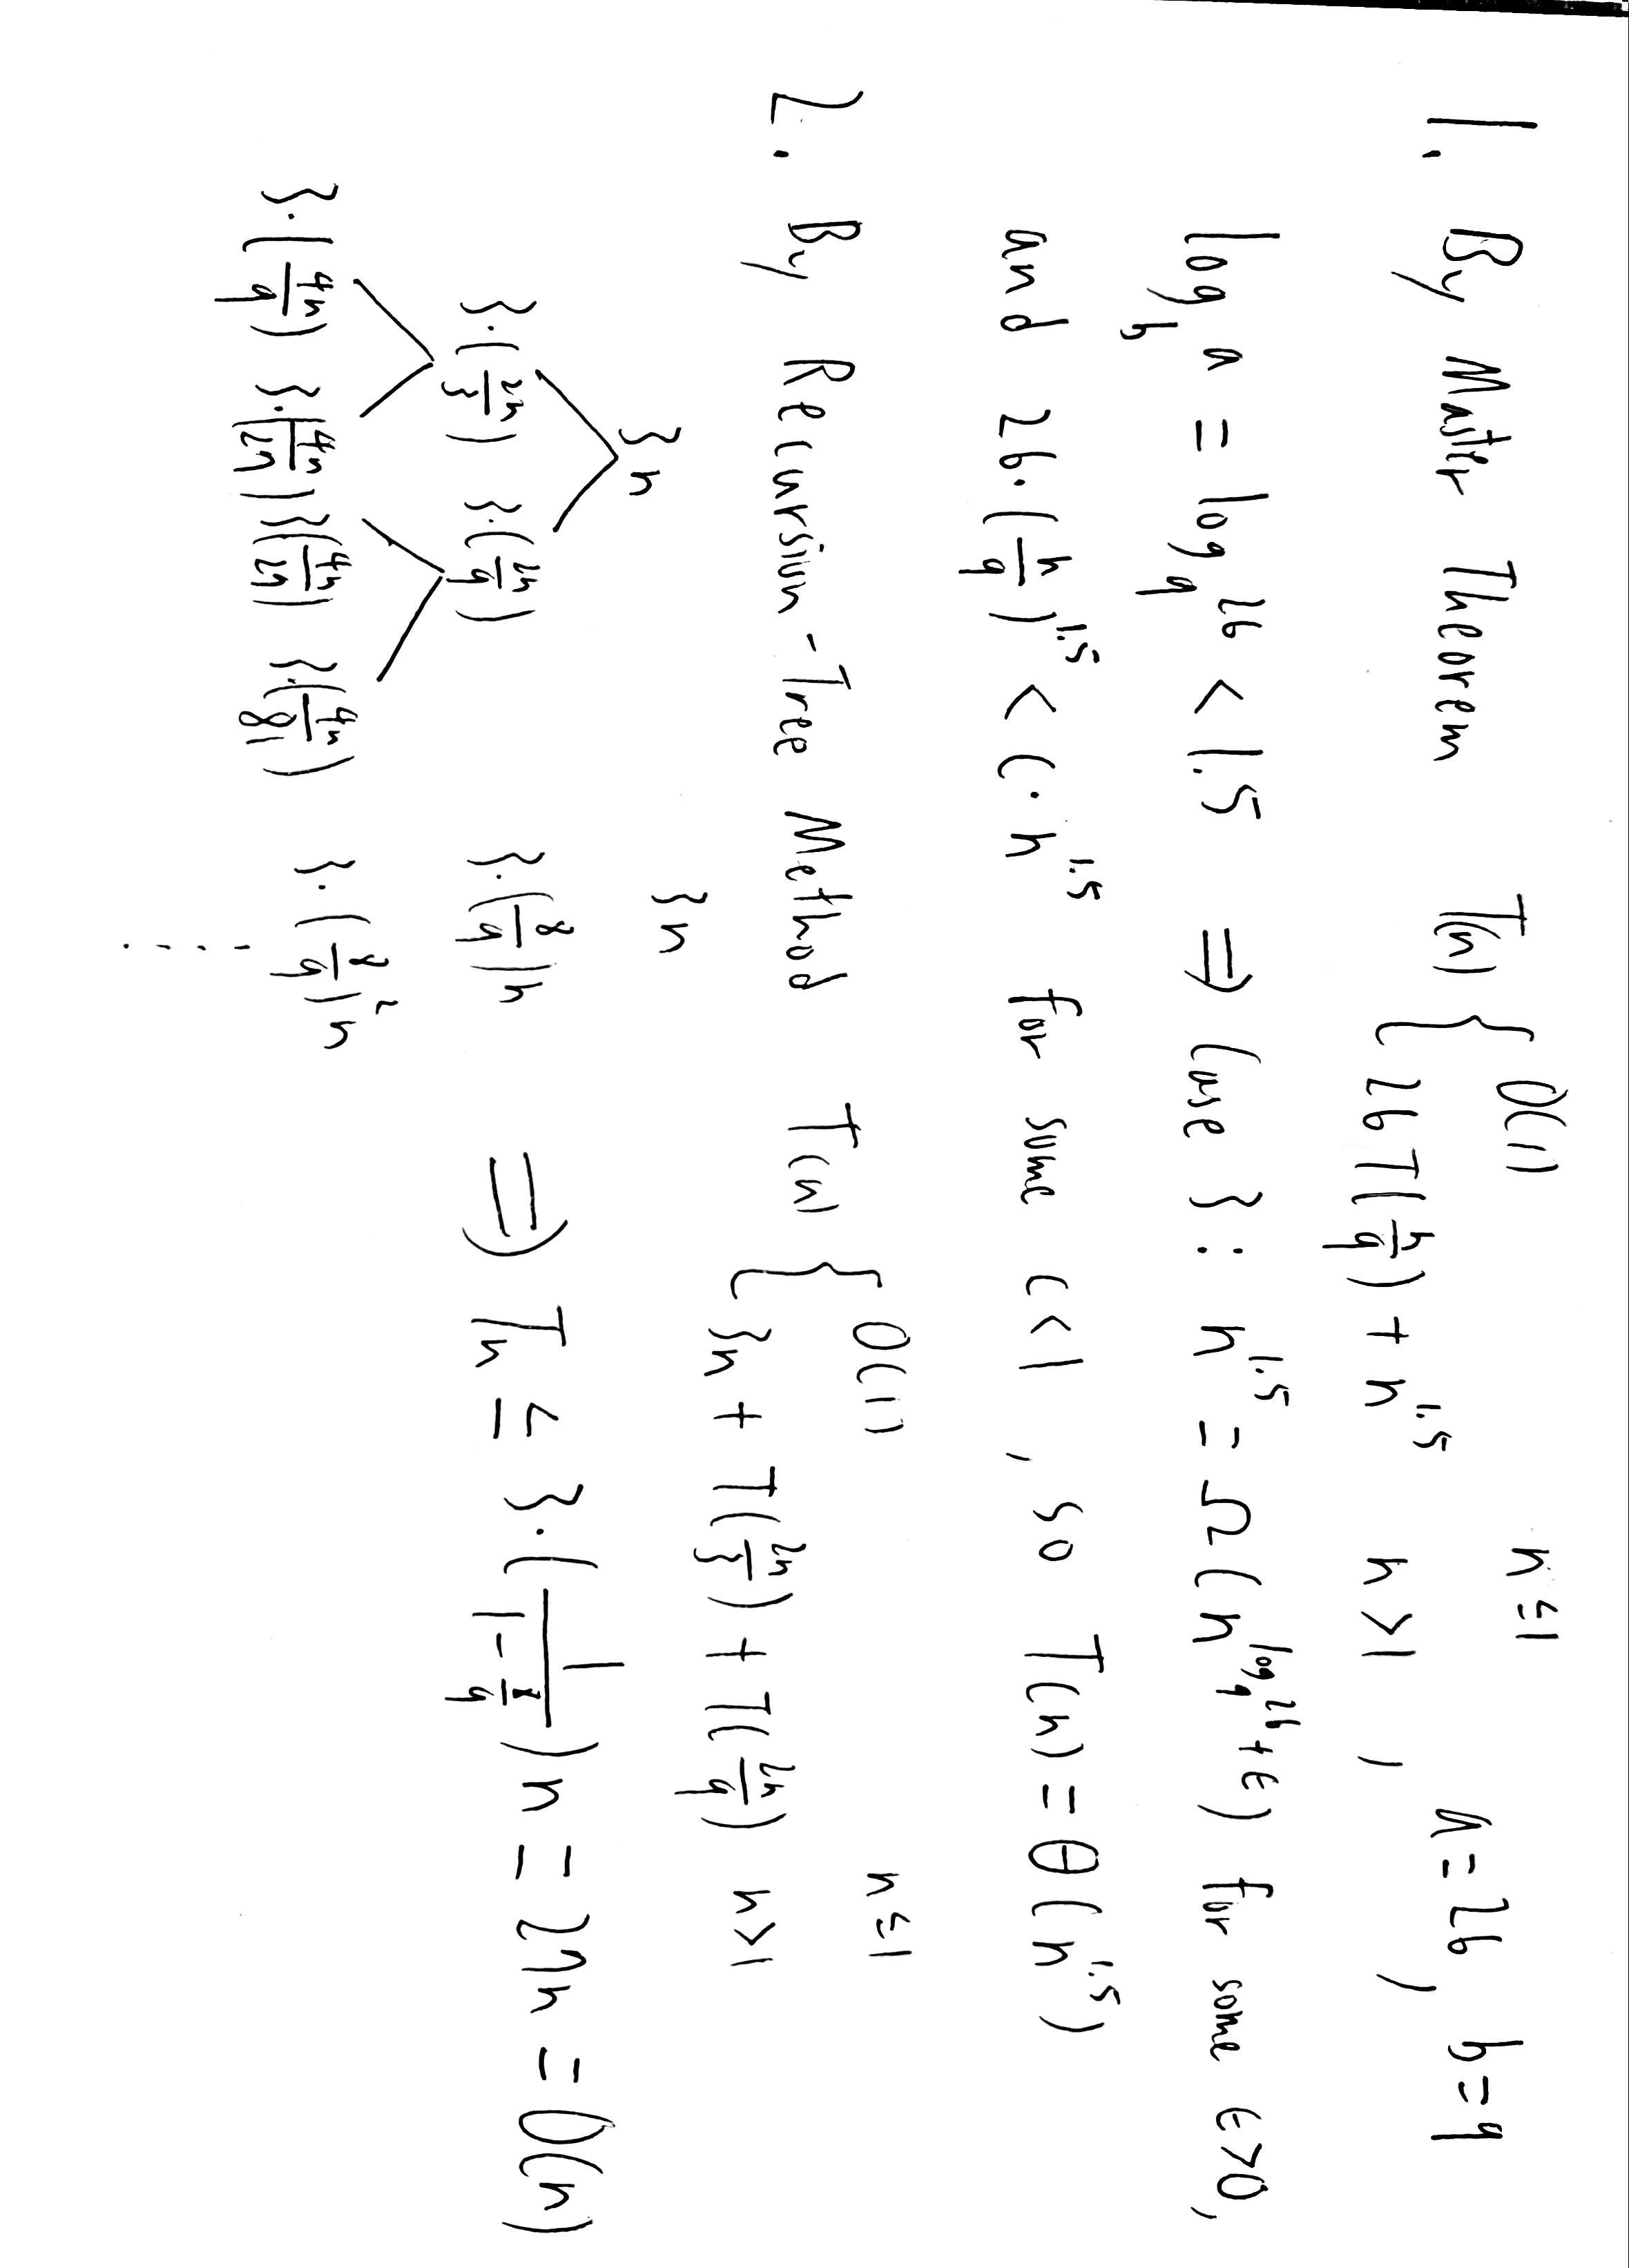 1. By Master Theorem T(n) { O(1) n≤1
26T(n/9) + n^1.5 n>1 , a=26, b=9
log_b a = log_9 26 < 1.5 ⇒ Case 3: n^1.5 = Ω(n^(log_9 26 + ε)) for some ε>0,
and 26·(n/9)^1.5 < c·n^1.5 for some c<1, so T(n) = θ(n^1.5)
2. By Recursion-Tree Method T(n) { O(1) n≤1
3n + T(2n/3) + T(2n/9) n>1
3n 3n
3·(2n/3) 3·(2n/9) 3·(8/9)n ⇒ Tn ≤ 3·(1/(1-8/9))n = 27n = O(n)
3·(4n/9) 3·(4n/27) 3(4n/27) 3·(4n/81) 3·(8/9)^2 n
⋮